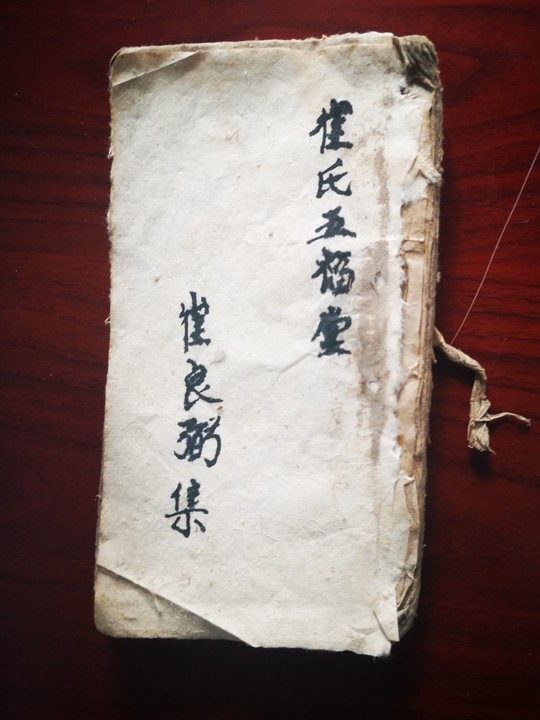 崔氏五福堂
崔良弼集